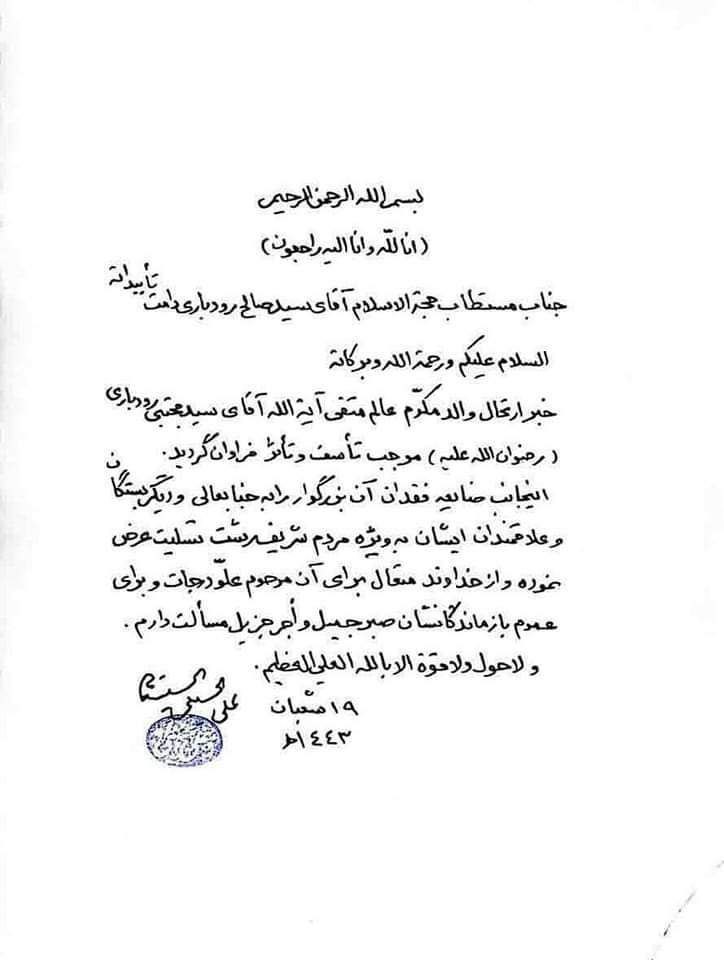 بسم الله الرحمن الرحیم
(انا لله و انا الیه راجعون)
جناب مستطاب حجة الاسلام آقای سید صالح رودباری دامت تأییداته
السلام علیکم ورحمة الله وبرکاته
خبر ارتحال والد مکرّم عالم متقی آیة الله آقای سید مجتبی رودباری
(رضوان الله علیه) موجب تأسف و تأثر فراوان گردید.
اینجانب ضایعه فقدان آن بزرگوار را به جنابعالی و دیگر بستگان
و علاقمندان ایشان به ویژه مردم شریف رشت تسلیت عرض
نموده و از خداوند متعال برای آن مرحوم علوّ درجات و برای
عموم بازماندگانشان صبر جمیل و أجر جزیل مسألت دارم.
ولا حول ولا قوة الا بالله العلي العظیم.
۱۹ شعبان
۱٤٤۳هـ
علي الحسيني السيستاني